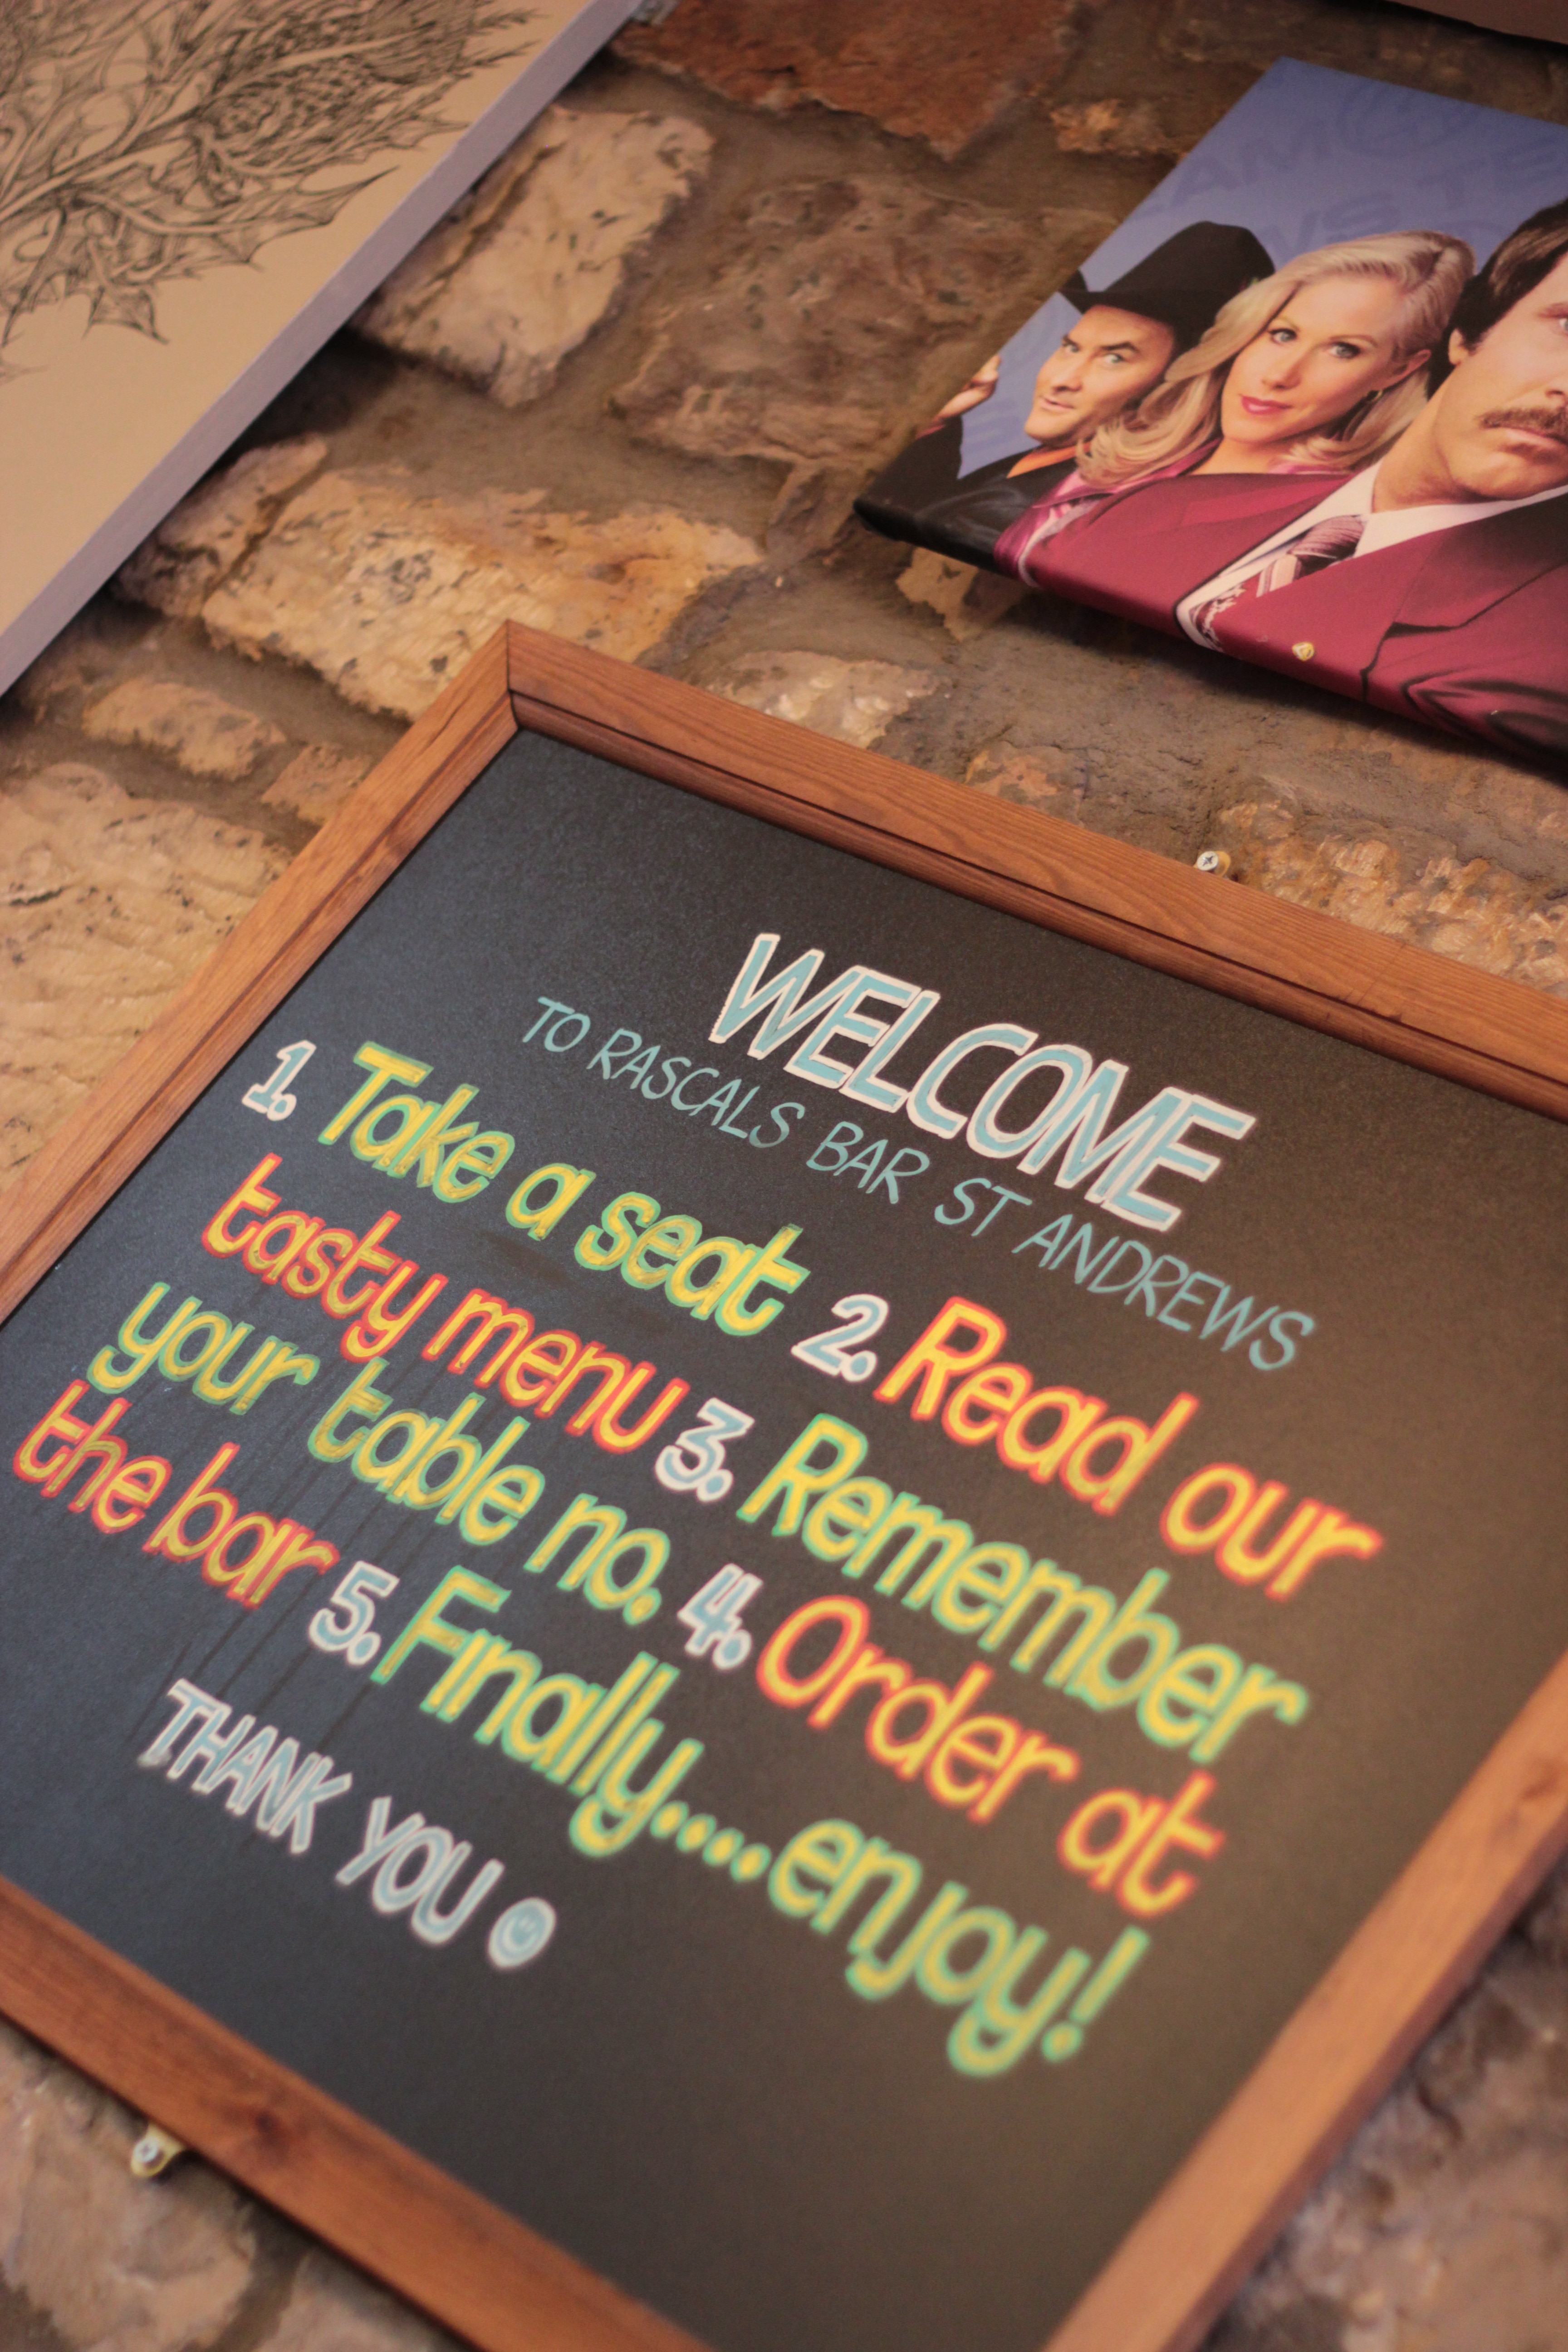 WELCOME
TO RASCALS BAR ST ANDREWS
1. Take a seat 2. Read our
tasty menu 3. Remember
your table no. 4. Order at
the bar 5. Finally....enjoy!
THANK YOU